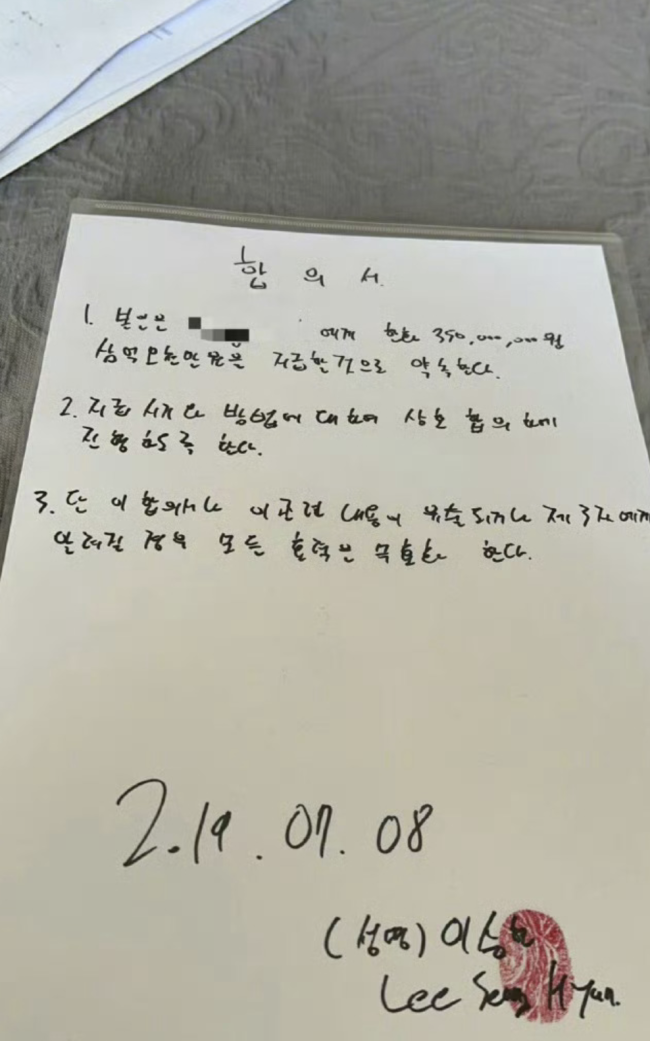 합 의 서
1. 본인은 에게 현화 350,000,000원
삼억오천만원을 지급할것으로 약속한다.
2. 지급 시기나 방법에 대하여 상호 협의하에
진행하도록 한다.
3. 단 이 합의서나 이 관련 내용이 유출되거나 제 3자에게
알려질 경우 모든 효력은 무효화 한다.
2.19.07.08
(성명) 이승현
Lee Seung Hyun.